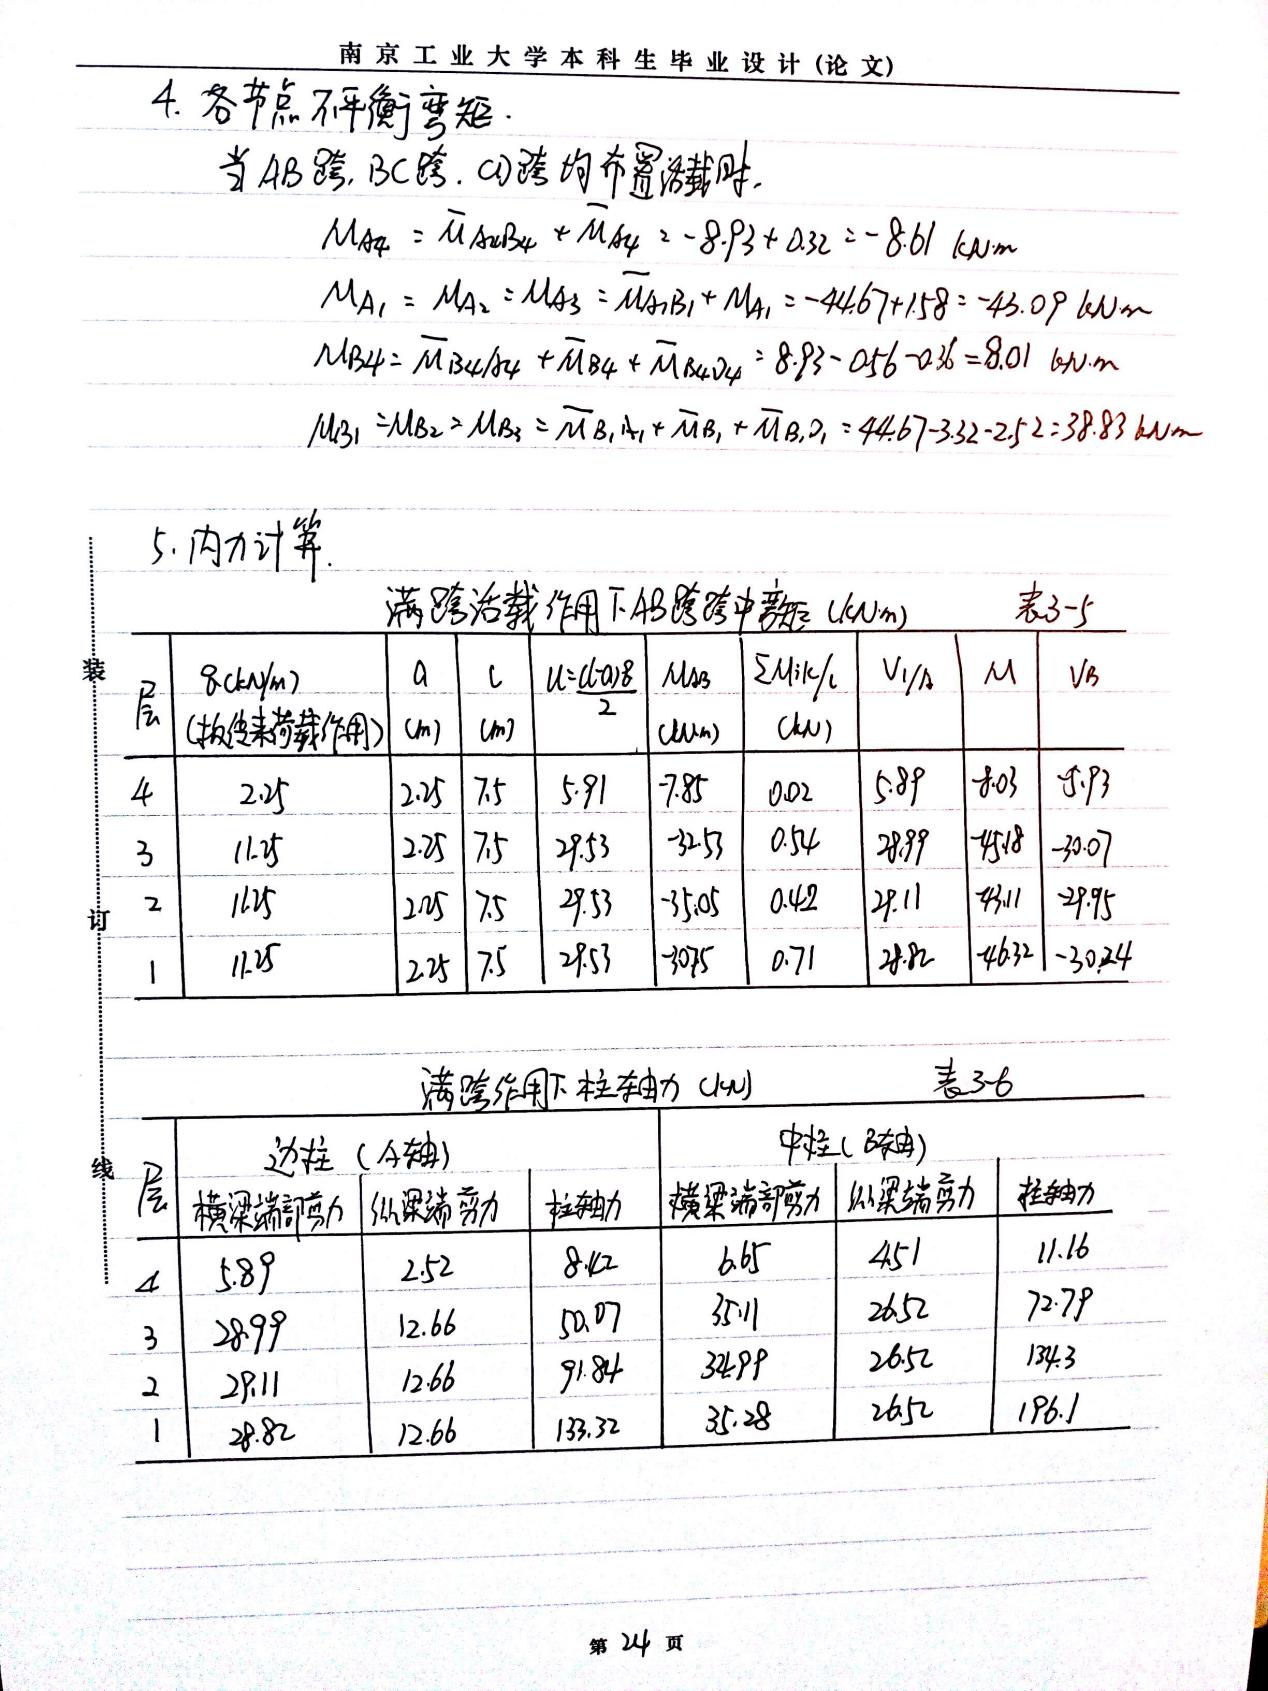 南京工业大学本科生毕业设计(论文)
4. 各节点不平衡弯矩.
当AB跨, BC跨, CD跨均布置活载时.
MA4 = M̅A4B4 + M̅A4 = -8.93+0.32 = -8.61 kN·m
MA1 = MA2 = MA3 = M̅A1B1 + MA1 = -44.67+1.58 = -43.09 kN·m
MB4 = M̅B4A4 + M̅B4 + M̅B4D4 = 8.93-0.56-0.36 = 8.01 kN·m
MB1 = MB2 = MB3 = M̅B1A1 + M̅B1 + M̅B1D1 = 44.67-3.32-2.52 = 38.83 kN·m
5. 内力计算.
满跨活载作用下AB跨跨中弯矩 (kN·m) 表3-5
层 q(kN/m) (板传来荷载作用) a (m) L (m) u=(L-a)q/2 MAB (kN·m) ΣMik/L (kN) V1/A M VB
4 2.25 2.25 7.5 5.91 -7.85 0.02 5.89 -8.03 -5.93
3 11.25 2.25 7.5 29.53 -32.53 0.54 28.99 -45.18 -30.07
2 11.25 2.25 7.5 29.53 -35.05 0.42 29.11 -43.11 -29.95
1 11.25 2.25 7.5 29.53 -30.75 0.71 28.82 -46.32 -30.24
满跨作用下柱轴力 (kN) 表3-6
层 边柱 (A轴) 中柱 (B轴)
横梁端部剪力 纵梁端剪力 柱轴力 横梁端部剪力 纵梁端剪力 柱轴力
4 5.89 2.52 8.42 6.65 4.51 11.16
3 28.99 12.66 50.07 35.11 26.52 72.79
2 29.11 12.66 91.84 34.99 26.52 134.3
1 28.82 12.66 133.32 35.28 26.52 196.1
装
订
线
第 24 页